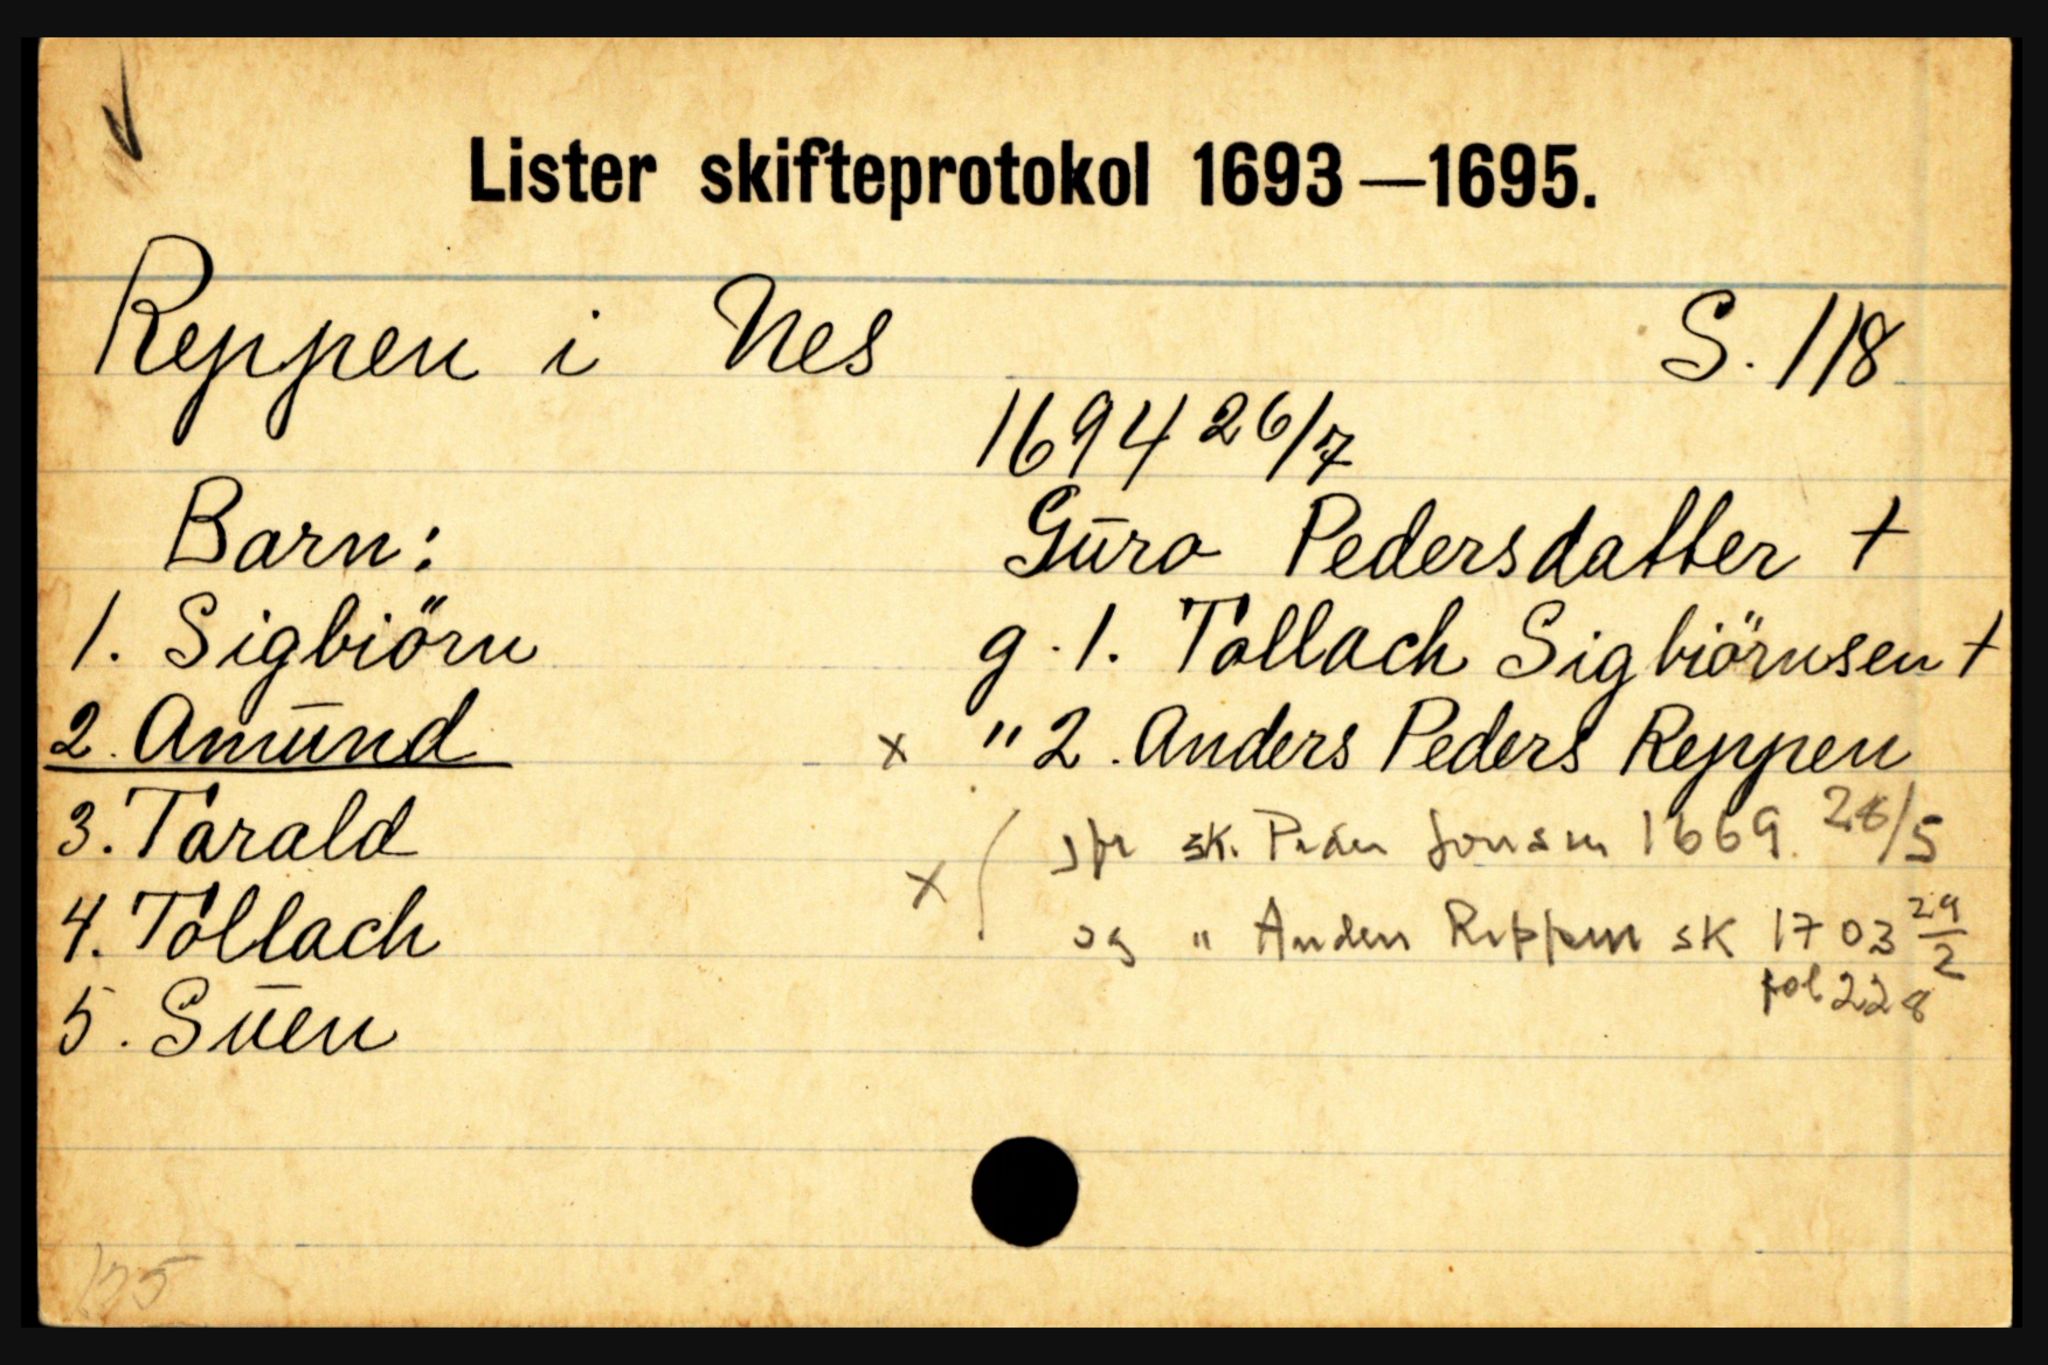 Lister skifteprotokol 1693—1695.
Reppen i Nes S. 118
1694 26/7
Barn: Gūro Pedersdatter +
1. Sigbiörn g. 1. Tollach Sigbiörnsen +
2. Amūnd x " 2. Anders Peders Reppen
3. Tarald sk. Peder Jonsen 1669. 28/5
4. Tollach x og " Anders Reppen sk 1703 29/2
fol 228
5. Sūen